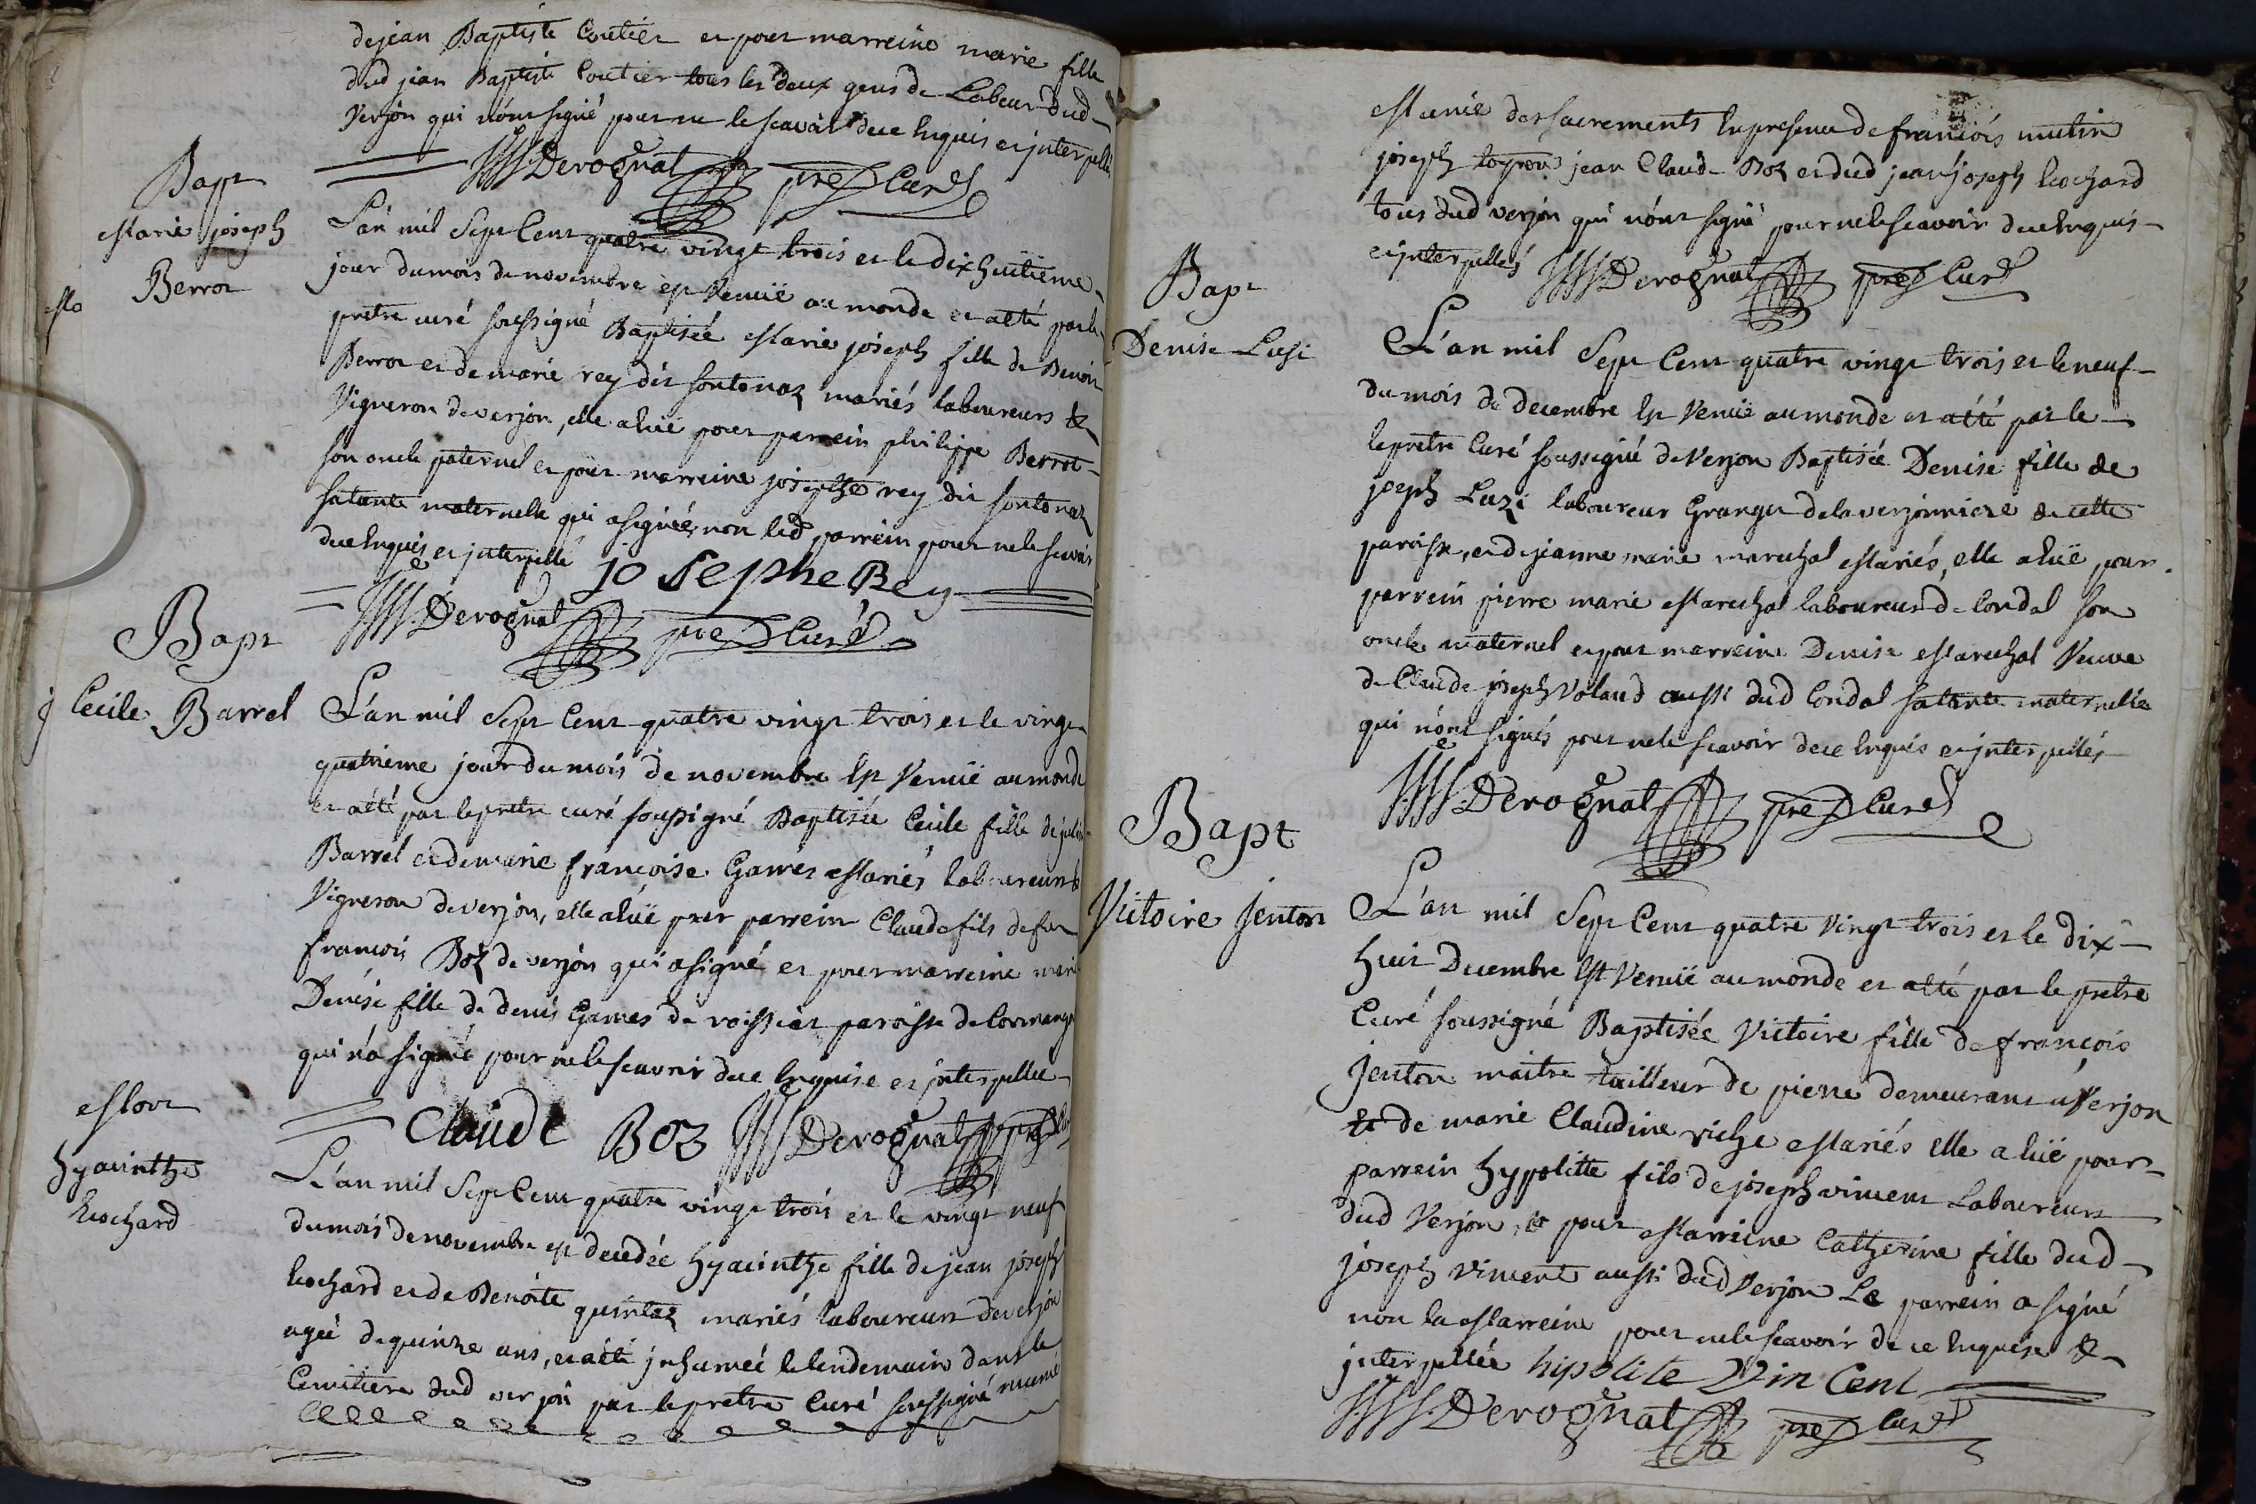 dejean Baptiste Coutier et pour marreine marie fille
dud jean Baptiste Coutier tous les deux gens de Labeur dud
Verjon qui n'ont signé pour ne le scavoir de ce Enquis et jnterpellés
Derognat pre Curé
Bapt
Marie joseph
Berrot
L'an mil Sept Cent quatre vingt trois et le dix huitieme
jour du mois de novembre est Venuë au monde et a été par le
pretre curé soussigné Baptisée Marie joseph fille de Benoit
Berrot et de marie rey dit fontenaz mariés laboureurs &
Vigneron de verjon, elle a huë pour parrein philippe Berrot
son oncle paternel et pour marreine josephe rey dit fontenaz
sa tante maternelle qui a signée, non led parrein pour ne le scavoir
de ce Enquis et jnterpellé josephe Rey
Derognat pre Curé
Bapt
Cecile Barrel
L'an mil Sept Cent quatre vingt trois et le vingt
quatrieme jour du mois de novembre Est Venuë au monde
et a été par le pretre curé soussigné Baptisée Cecile fille de
Barrel et de marie françoise Garnes Mariés laboureurs &
Vigneron de verjon, elle a huë pour parrein Claude fils de feu
francois Boz de verjon qui a signé et pour marreine marie
Denise fille de denis Garnes de roissiat paroisse de Cormangou
qui n'a signé pour ne le scavoir de ce Enquise et jnterpellée
Claude Boz Derognat pre Curé
Mort
hyacinthe
Cochard
L'an mil Sept Cent quatre vingt trois et le vingt neuf
du mois de novembre est decedée hyacinthe fille de jean joseph
Cochard et de Benoite quintaz mariés laboureurs de verjon
agée de quinze ans, et a été jnhumée le lendemain dans le
Cimitiere dud verjon par le pretre Curé soussigné munie
Marie des sacrements En presence de francois mutin
joseph jean Claude Boz et dud jean joseph Cochard
tous dud verjon qui n'ont signé pour ne le scavoir de ce Enquis
et jnterpellés Derognat pre Curé
Bapt
Denise Lusi
L'an mil Sept Cent quatre vingt trois et le neuf
du mois de decembre Est Venuë au monde et a été par le
le pretre Curé soussigné de Verjon Baptisée Denise fille de
joseph Luzi laboureur Granger de la verjonniere de cette
paroisse, et de jeanne marie marechal Mariés, elle a huë pour
parrein pierre marie Marechal laboureur de Condal son
oncle maternel et pour marreine Denise Marechal Veuve
de Claude joseph Voland aussi dud Condal sa tante maternelle
qui n'ont signés pour ne le scavoir de ce Enquis et jnterpellés
Derognat pre Curé
Bapt
Victoire jenton
L'an mil Sept Cent quatre Vingt trois et le dix
huit Decembre Est Venuë au monde et a été par le pretre
Curé soussigné Baptisée Victoire fille de françois
jenton maitre tailleur de pierre demeurant a Verjon
et de marie Claudine riche Mariés elle a huë pour
parrein hypolitte fils de joseph vincent Laboureur
dud Verjon, et pour Marreine Catherine fille dud
joseph vincent aussi dud Verjon Le parrein a signé
non la Marreine pour ne le scavoir de ce Enquise &
jnterpellée hipolite Vin Cent
Derognat pre Curé